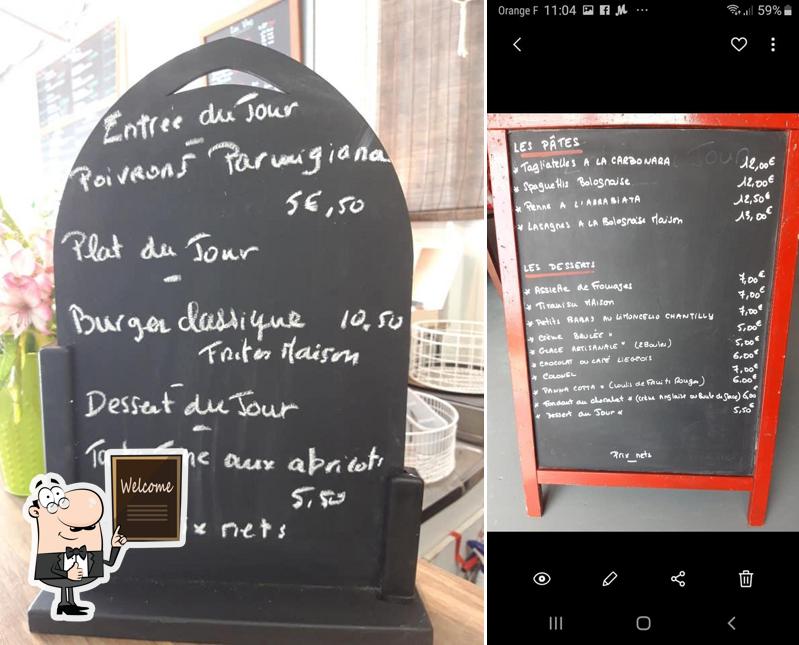 Entrée du Jour
Poivrons Parmigiana
5€,50
Plat du Jour
Burger classique 10.50
Frites Maison
Dessert du Jour
aux abricots
5,50
nets
Welcome
Orange F 11:04 59%
LES PÂTES
* Tagliatelles A LA CARBONARA 12,00€
* Spaghettis Bolognaise 12,00€
* Penne A L'ARRABIATA 12,50€
* LASAGNES A LA Bolognaise Maison 13,00€
LES DESSERTS
* Assiette de Fromages 7,00€
* Tiramisu Maison 7,00€
* Petits BABAS AU LIMONCELLO CHANTILLY 7,00€
* Crème BRULÉE " 5,00€
* GLACE ARTISANALE " (2Boules) 5,00€
* CHOCOLAT OU CAFÉ LIEGEOIS 6,00€
* COLONEL 7,00€
* PANNA COTTA " (Coulis de Fruits Rouges) 6.00€
* Fondant au chocolat " (crème Anglaise ou Boule de Glace) 6,00€
* Dessert du Jour " 5,50€
Prix nets